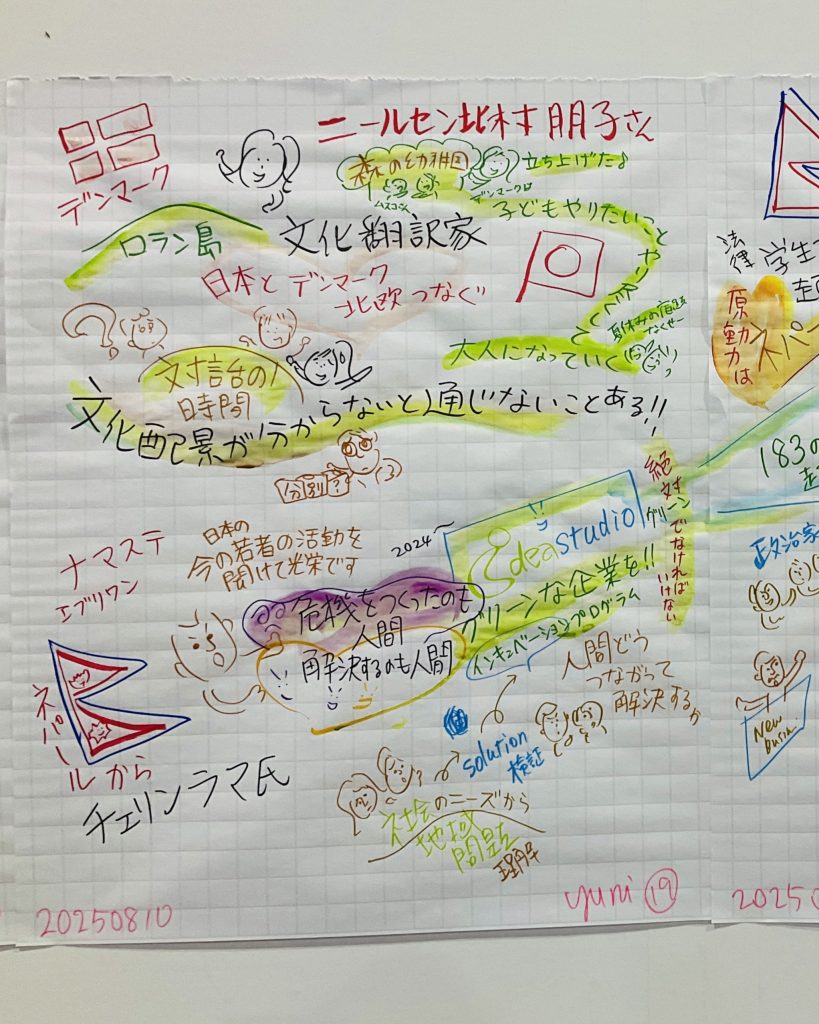 ニールセン北村朋子さん
デンマーク
森の幼稚園
立ち上げた♪
ムスコさん
デンマークは
子どもやりたいこと
やりきって
ロラン島
文化翻訳家
日本とデンマーク
北欧つなぐ
夏休みの宿題
なくせー
大人になっていく
対話の
時間
文化配景が分からないと通じないことある!!
分別?
絶対
グリーンでなければ
いけない
2024〜
Ideastudio
グリーンな企業を!!
インキュベーションプログラム
ナマステ
エブリワン
日本の
今の若者の活動を
聞けて光栄です
危機をつくったのも
人間
解決するのも人間
人間どう
つながって
解決するか
solution
検証
ネパールから
チェリンラマ氏
社会のニーズから
地域
問題
理解
20250810
yuni ⑲
法律
学生
原動力は
ネパー
183の
政治家
New
busin
2025